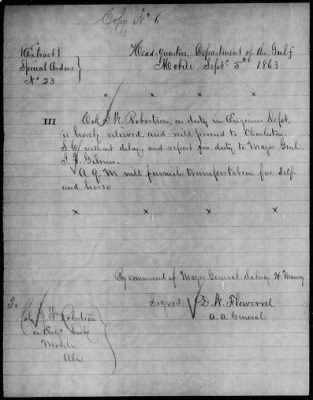 Copy No 6
Extract
Special Orders
No 23
Head quarters, Department of the Gulf
Mobile Septr 5th 1863
x x x x
III Col W. Robertson, on duty in Engineer Dept.
is hereby relieved, and will proceed to Charleston
S.C. without delay, and report for duty to Major Genl.
J. F. Gilmer.
A. Q. M. will furnish transportation for self
and horse
x x x x
By command of Major General Dabney H. Maury
Signed. D. W. Flowerree
A. A. General
To
Col W. Robertson
on Engr Duty
Mobile
Ala